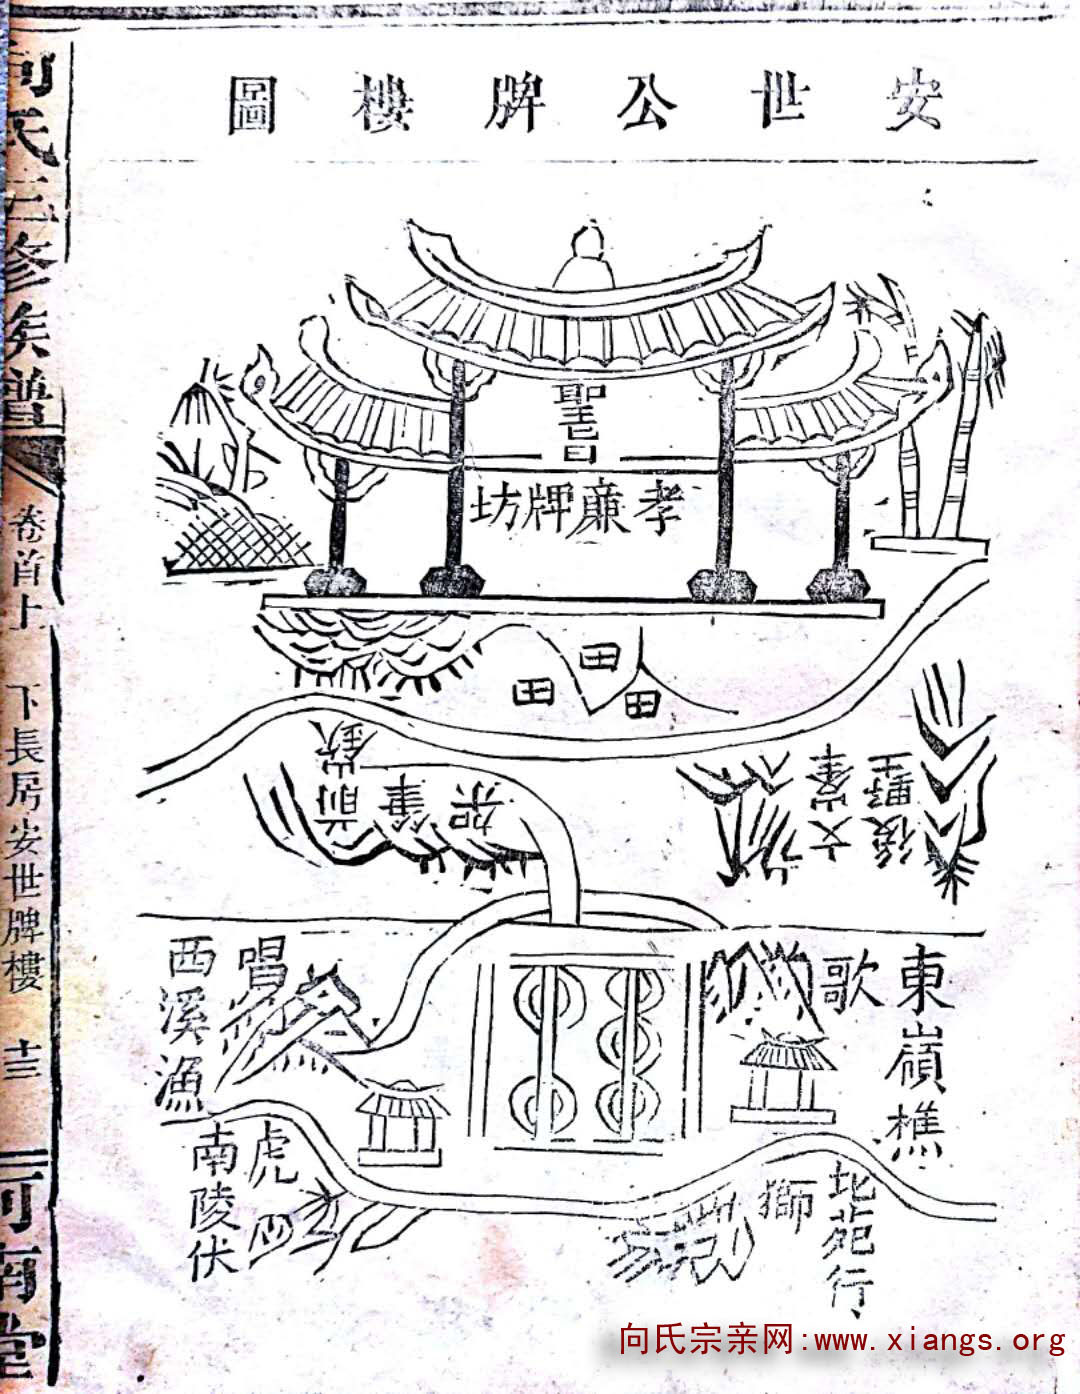 安世公牌樓圖
聖旨
孝廉牌坊
田
田
田
前嶔筆架
後野
文峯
東嶺樵
歌
西溪漁
唱
南陵伏
虎
北苑行
獅
向氏三修族譜
卷首上
下長房安世牌樓
十三
河南堂
向氏宗亲网:www.xiangs.org